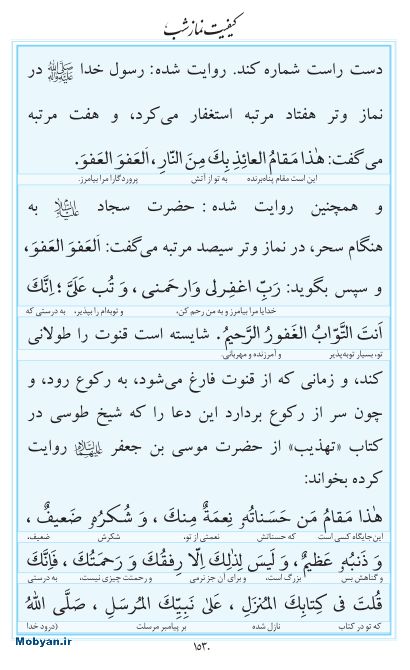 کیفیت نماز شب
دست راست شماره کند. روایت شده: رسول خدا ﷺ در
نماز وتر هفتاد مرتبه استغفار می‌کرد، و هفت مرتبه
می‌گفت: هٰذا مَقامُ العائِذِ بِكَ مِنَ النّارِ، اَلعَفوَ العَفوَ.
این است مقام پناه‌برنده به تو از آتش پروردگارا مرا بیامرز.
و همچنین روایت شده: حضرت سجاد علیه‌السلام به
هنگام سحر، در نماز وتر سیصد مرتبه می‌گفت: اَلعَفوَ العَفوَ،
و سپس بگوید: رَبِّ اغفِرلی وَارحَمنی، وَ تُب عَلَیَّ؛ اِنَّكَ
خدایا مرا بیامرز و به من رحم کن، و توبه‌ام را بپذیر، به درستی که
اَنتَ التَّوّابُ الغَفورُ الرَّحیمُ. شایسته است قنوت را طولانی
تو، بسیار توبه‌پذیر و آمرزنده و مهربانی.
کند، و زمانی که از قنوت فارغ می‌شود، به رکوع رود، و
چون سر از رکوع بردارد این دعا را که شیخ طوسی در
کتاب «تهذیب» از حضرت موسی بن جعفر علیهماالسلام روایت
کرده بخواند:
هٰذا مَقامُ مَن حَسَناتُهُ نِعمَةٌ مِنكَ، وَ شُكرُهُ ضَعیفٌ،
این جایگاه کسی است که حسناتش نعمتی از تو، شکرش ضعیف،
وَ ذَنبُهُ عَظیمٌ، وَ لَیسَ لِذٰلِكَ اِلّا رِفقُكَ وَ رَحمَتُكَ، فَاِنَّكَ
و گناهش بس بزرگ است، و برای آن جز نرمی و رحمتت چیزی نیست، به درستی
قُلتَ فی كِتابِكَ المُنزَلِ، عَلیٰ نَبِیِّكَ المُرسَلِ، صَلَّی اللهُ
که تو در کتاب نازل شده بر پیامبر مرسلت (درود خدا
۱۵۳۰
Mobyan.ir